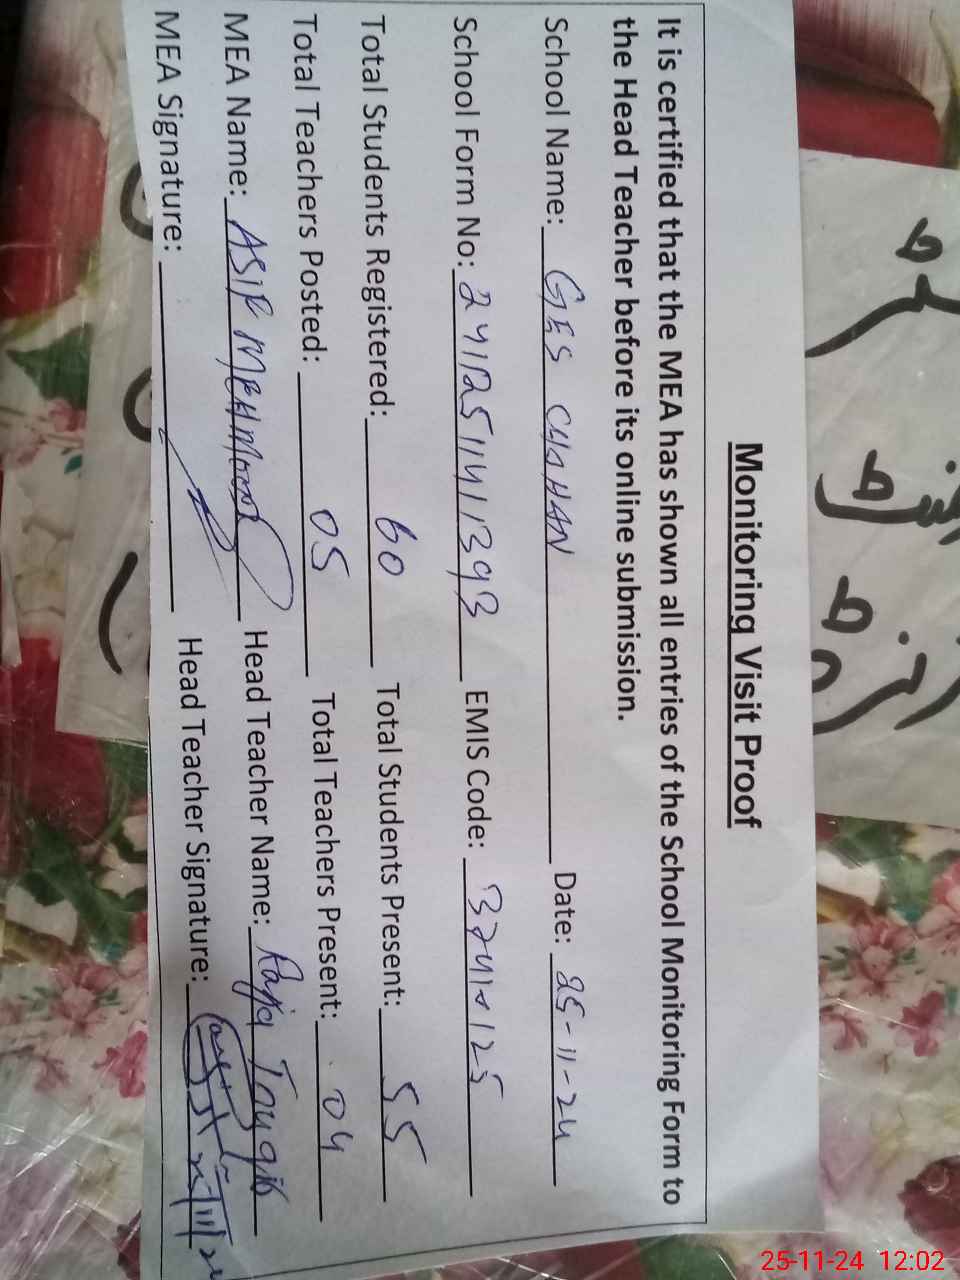 Monitoring Visit Proof
It is certified that the MEA has shown all entries of the School Monitoring Form to
the Head Teacher before its online submission.
School Name: GES CHAHAN Date: 25-11-24
School Form No: EMIS Code:
Total Students Registered: 60 Total Students Present: 55
Total Teachers Posted: 05 Total Teachers Present: 04
MEA Name: ASIF MEHMOOD Head Teacher Name: Raja
MEA Signature: Head Teacher Signature:
25-11-24 12:02